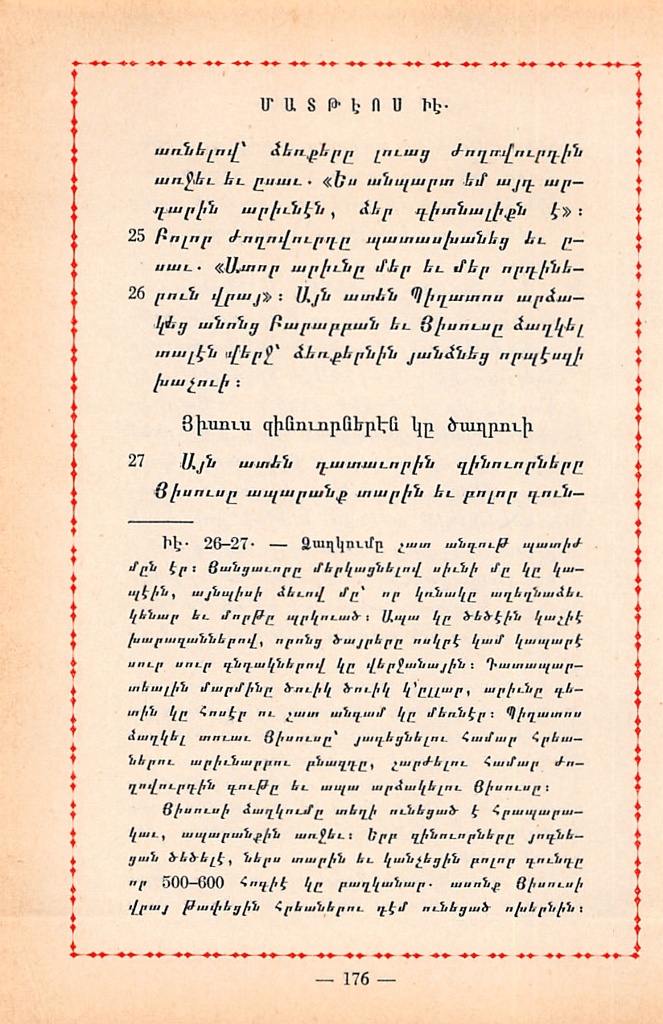 ՄԱՏԹԷՈՍ ԻԷ․
առնելով՝ ձեռքերը լուաց ժողովուրդին
առջեւ եւ ըսաւ. «Ես անպարտ եմ այդ ար–
դարին արիւնէն, ձեր գիտնալիքն է»։
25 Բոլոր ժողովուրդը պատասխանեց եւ ը–
սաւ. «Ատոր արիւնը մեր եւ մեր որդինե–
26 րուն վրայ»։ Այն ատեն Պիղատոս արձա–
կեց անոնց Բարարբան եւ Յիսուսը ձաղկել
տալէն վերջ՝ ձեռքերնին յանձնեց որպէսզի
խաչուի։
Յիսուս զինուորներէն կը ծաղրուի
27 Այն ատեն դատաւորին զինուորները
Յիսուսը ապարանք տարին եւ բոլոր գուն–
ԻԷ. 26–27. — Ձաղկումը շատ անգութ պատիժ
մըն էր։ Յանցաւորը մերկացնելով սիւնի մը կը կա–
պէին, այնպիսի ձեւով մը՝ որ կռնակը աղեղնաձեւ
կենար եւ մորթը պրկուած։ Ապա կը ծեծէին կաշիէ
խարազաններով, որոնց ծայրերը ոսկրէ կամ կապարէ
սուր սուր գնդակներով կը վերջանային։ Դատապար–
տեալին մարմինը ծուիկ ծուիկ կ՚ըլլար, արիւնը գե–
տին կը հոսէր ու շատ անգամ կը մեռնէր։ Պիղատոս
ձաղկել տուաւ Յիսուսը՝ յագեցնելու համար հրեա–
ներու արիւնարբու բնազդը, շարժելու համար ժո–
ղովուրդին գութը եւ ապա արձակելու Յիսուսը։
Յիսուսի ձաղկումը տեղի ունեցած է հրապարա–
կաւ, ապարանքին առջեւ։ Երբ զինուորները յոգնե–
ցան ծեծելէ, ներս տարին եւ կանչեցին բոլոր գունդը
որ 500–600 հոգիէ կը բաղկանար. ասոնք Յիսուսի
վրայ թափեցին հրեաներու դէմ ունեցած ոխերնին։
— 176 —